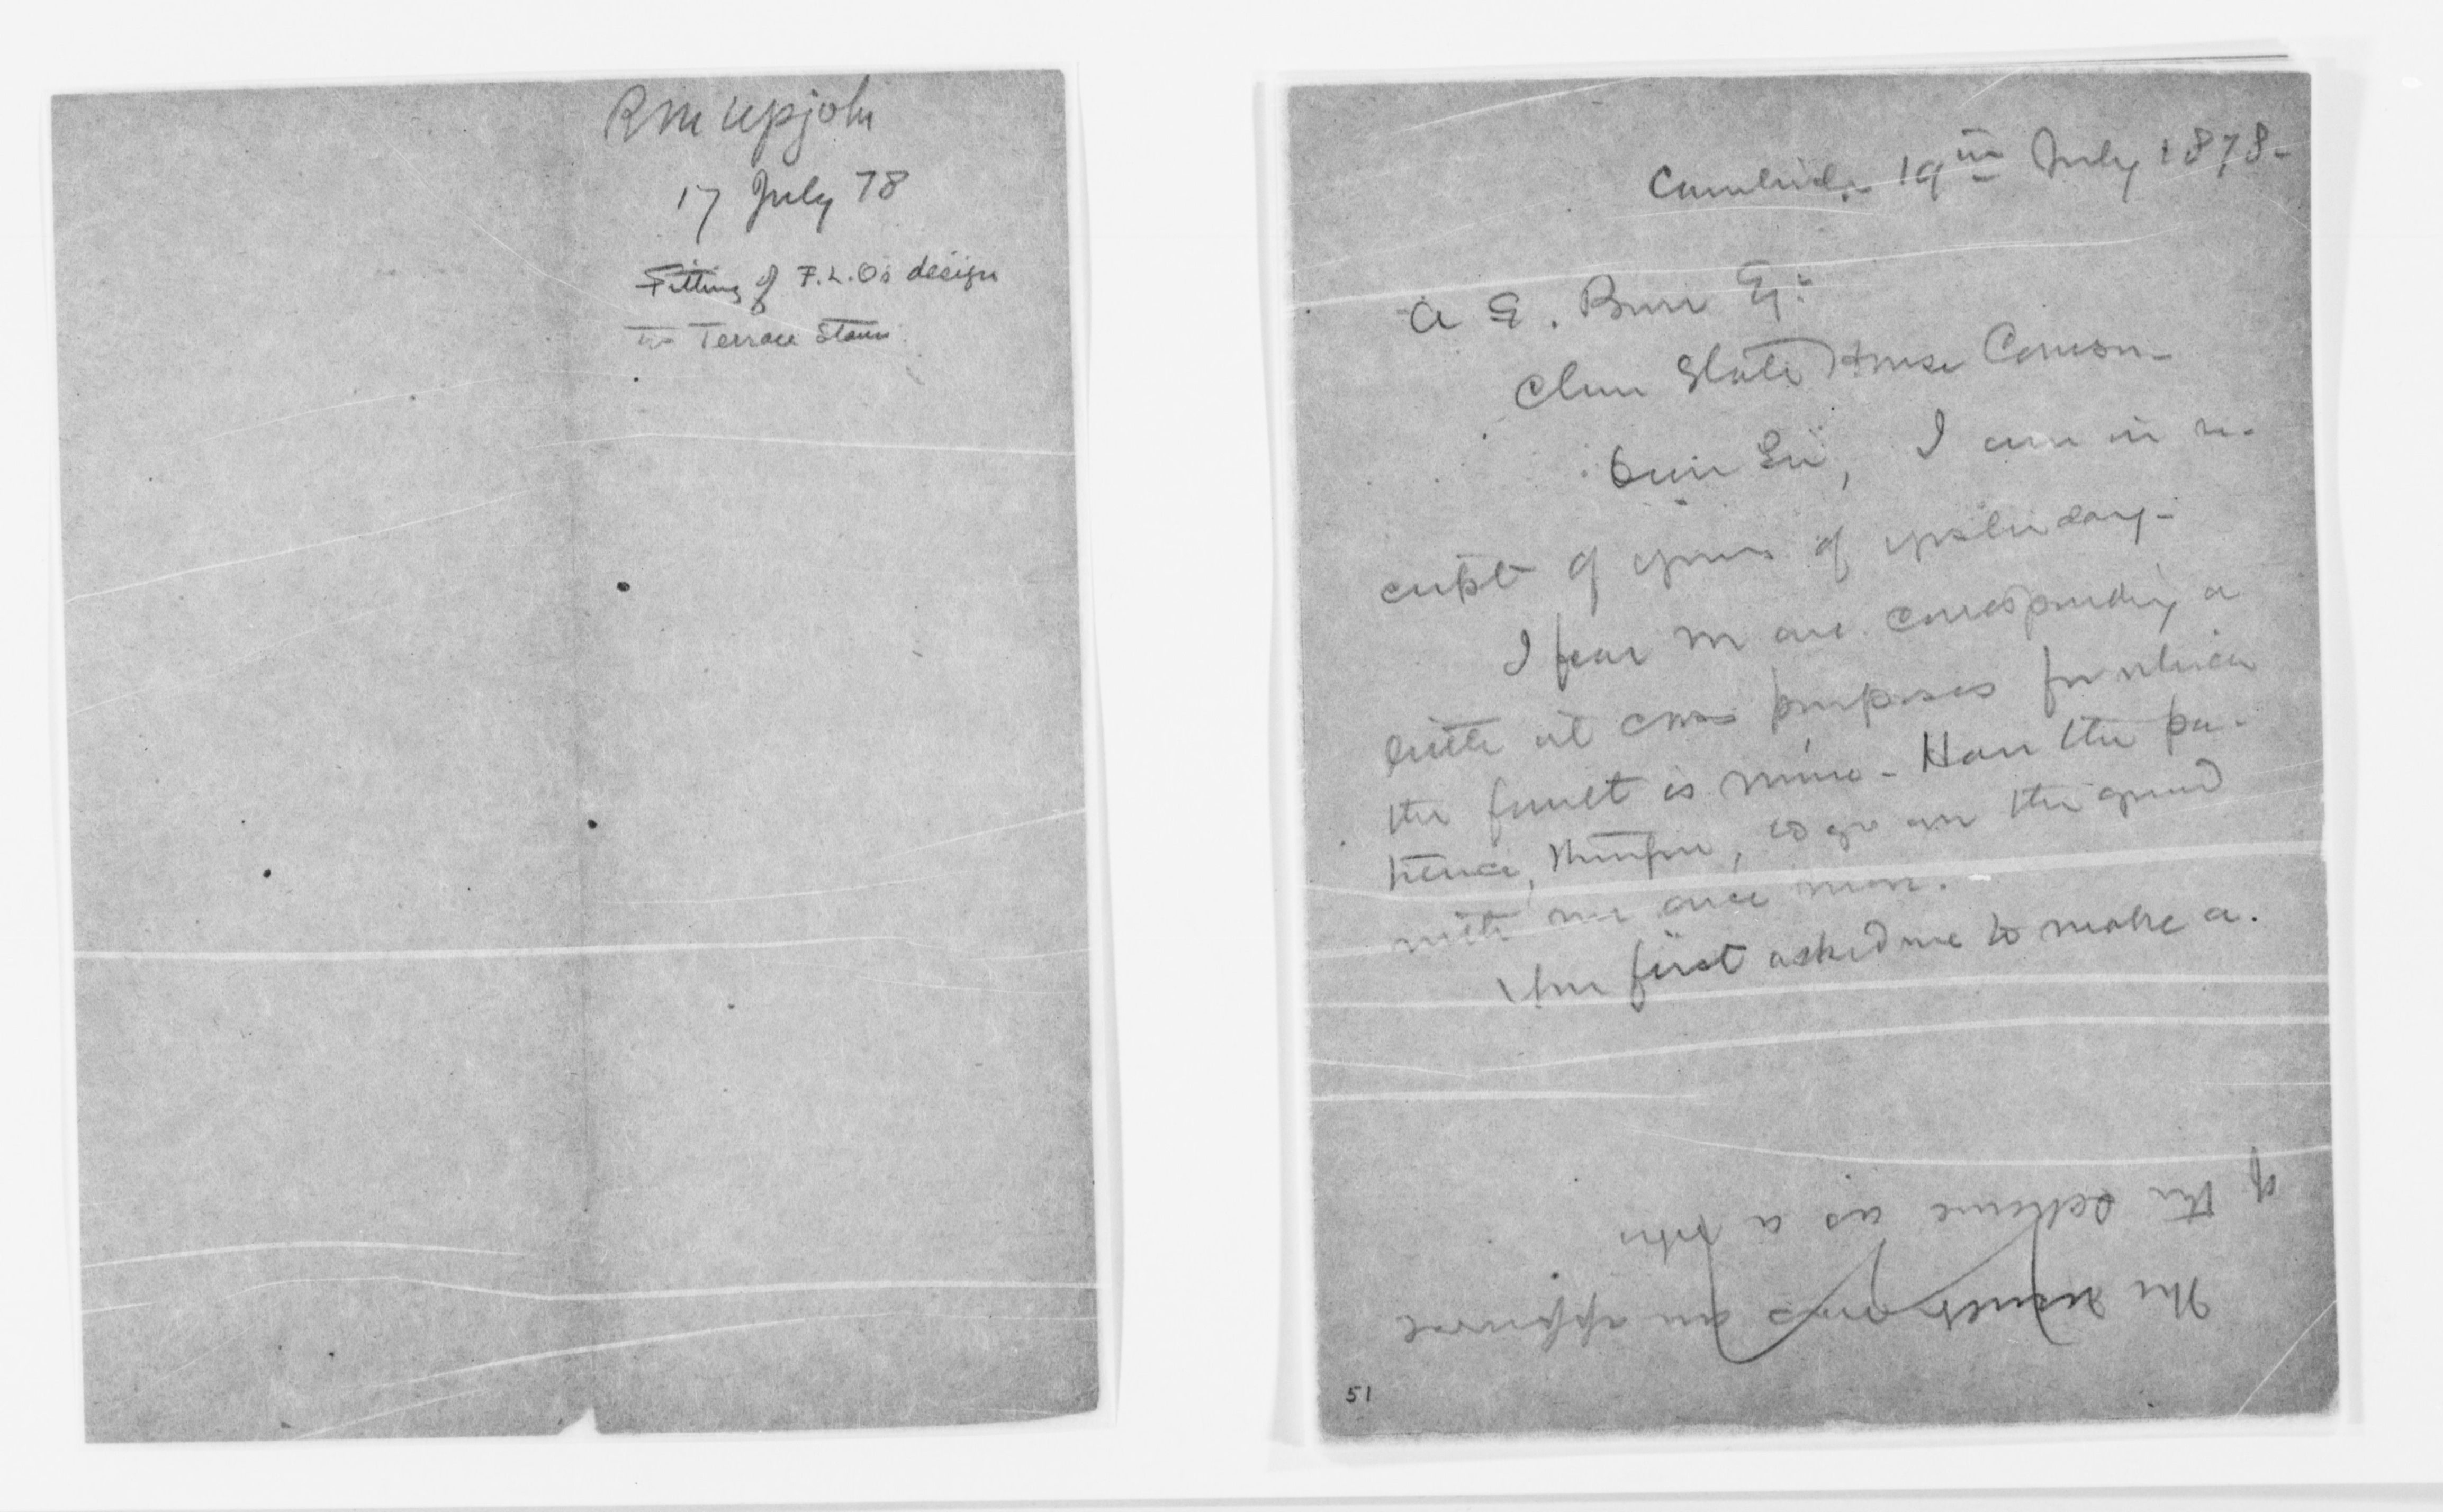 RM Upjohn
17 July 78
Fitting of F.L.O's design
to Terrace Stairs.
Cambridge 19th July 1878-
A E. Burr Esq:
Chmn State House Commsn-
Dear Sir, I am in re-
ceipt of yours of yesterday-
I fear we are corresponding a
little at cross purposes for which
the fault is mine- Have the pa-
tience, therefore, to go over the ground
with me once more.
You first asked me to make a.
of the scheme as a
The was an
51